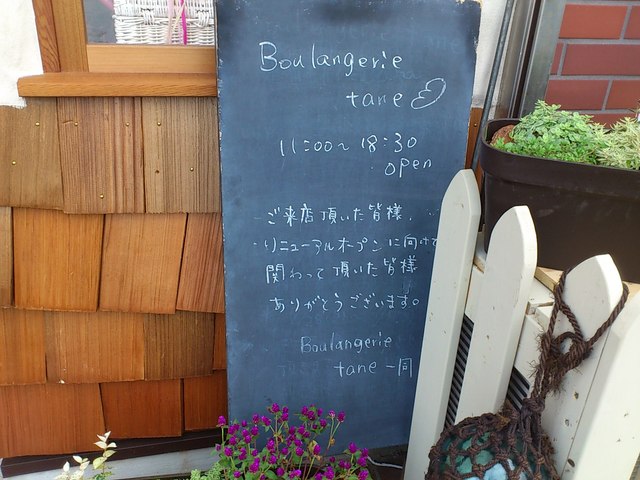 Boulangerie
tane
11:00~18:30
open
ご来店頂いた皆様、
リニューアルオープンに向けて
関わって頂いた皆様
ありがとうございます。
Boulangerie
tane一同